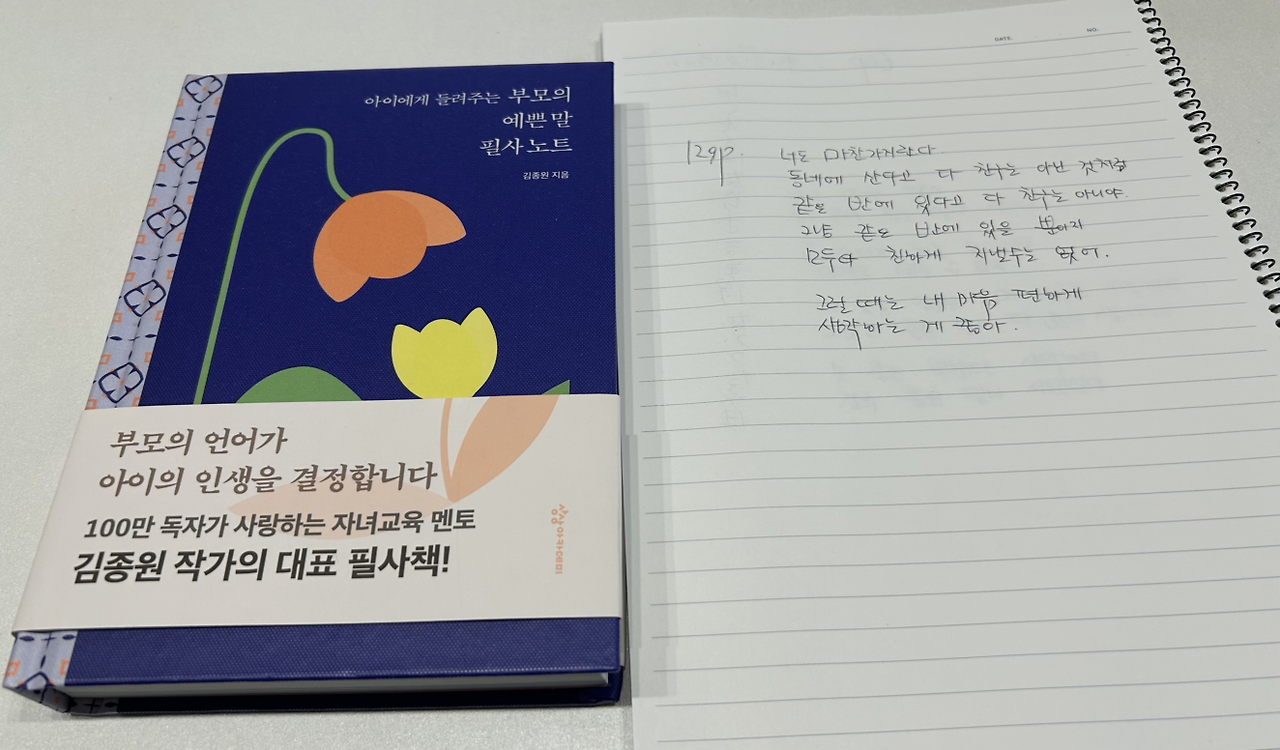 아이에게 들려주는 부모의
예쁜 말
필사 노트
김종원 지음
부모의 언어가
아이의 인생을 결정합니다
100만 독자가 사랑하는 자녀교육 멘토
김종원 작가의 대표 필사책!
상상아카데미
DATE.
NO.
129p.
너도 마찬가지란다
동네에 산다고 다 친구는 아닌 것처럼
같은 반에 있다고 다 친구는 아니야.
그냥 같은 반에 있을 뿐이지
모두와 친하게 지낼수는 없어.
그럴 때는 내 마음 편하게
생각하는 게 좋아.